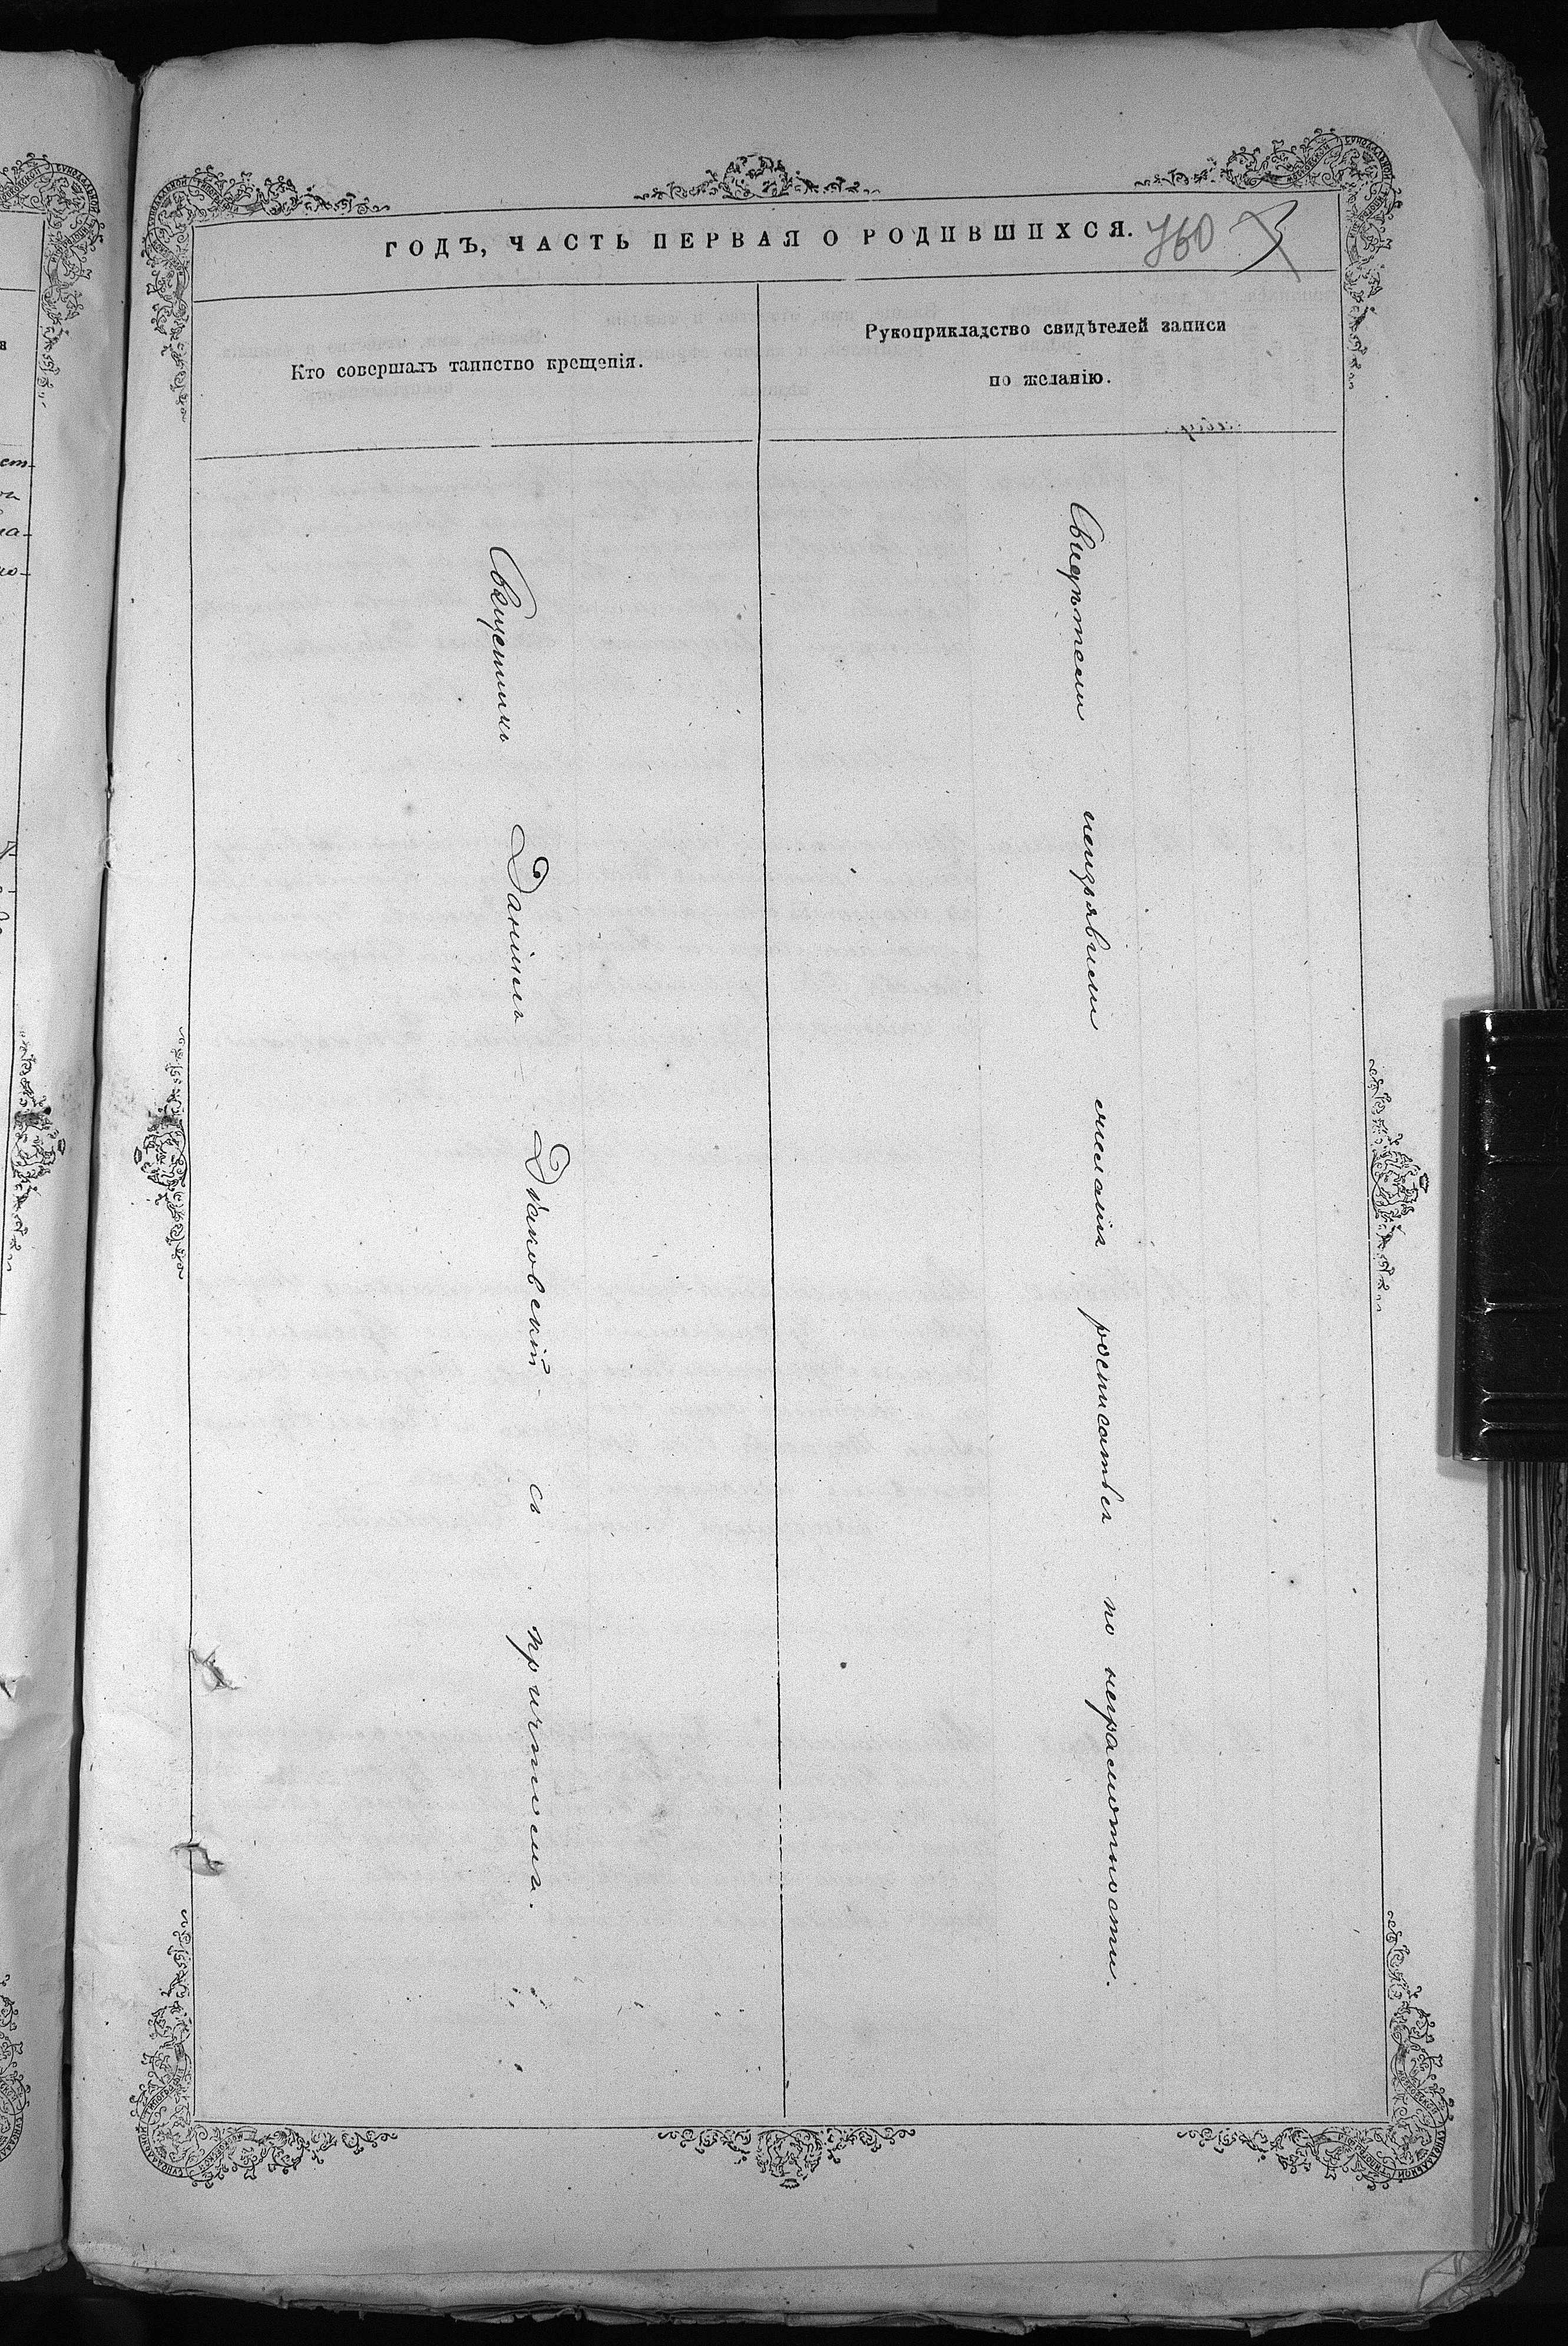 ГОДЪ, ЧАСТЬ ПЕРВАЯ О РОДИВШИХСЯ. 760
Кто совершалъ таинство крещенія.
Рукоприкладство свидѣтелей записи
по желанію.
Священникъ Даніилъ Дьаковскій съ причтомъ.
Свидѣтели неизъявили желанія росписаться по неграмотности.